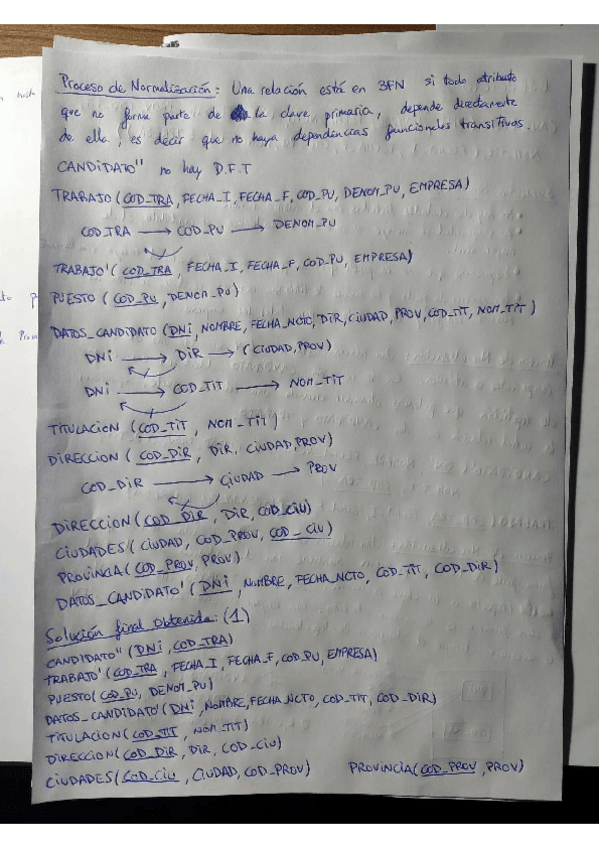 Proceso de Normalización: Una relación está en 3FN si todo atributo
que no forma parte de la clave primaria, depende directamente
de ella, es decir que no haya dependencias funcionales transitivas.
CANDIDATO" no hay D.F.T
TRABAJO (COD_TRA, FECHA_I, FECHA_F, COD_PU, DENOM_PU, EMPRESA)
COD_TRA → COD_PU → DENOM_PU
TRABAJO' (COD_TRA, FECHA_I, FECHA_F, COD_PU, EMPRESA)
PUESTO (COD_PU, DENOM_PU)
DATOS_CANDIDATO (DNI, NOMBRE, FECHA_NCTO, DIR, CIUDAD, PROV, COD_TIT, NOM_TIT)
DNI → DIR → (CIUDAD, PROV)
DNI → COD_TIT → NOM_TIT
TITULACION (COD_TIT, NOM_TIT)
DIRECCION (COD_DIR, DIR, CIUDAD, PROV)
COD_DIR → CIUDAD → PROV
DIRECCION (COD_DIR, DIR, COD_CIU)
CIUDADES (CIUDAD, COD_PROV, COD_CIU)
PROVINCIA (COD_PROV, PROV)
DATOS_CANDIDATO' (DNI, NOMBRE, FECHA_NCTO, COD_TIT, COD_DIR)
Solución final obtenida: (1)
CANDIDATO" (DNI, COD_TRA)
TRABAJO' (COD_TRA, FECHA_I, FECHA_F, COD_PU, EMPRESA)
PUESTO (COD_PU, DENOM_PU)
DATOS_CANDIDATO' (DNI, NOMBRE, FECHA_NCTO, COD_TIT, COD_DIR)
TITULACION (COD_TIT, NOM_TIT)
DIRECCION (COD_DIR, DIR, COD_CIU)
CIUDADES (COD_CIU, CIUDAD, COD_PROV) PROVINCIA (COD_PROV, PROV)